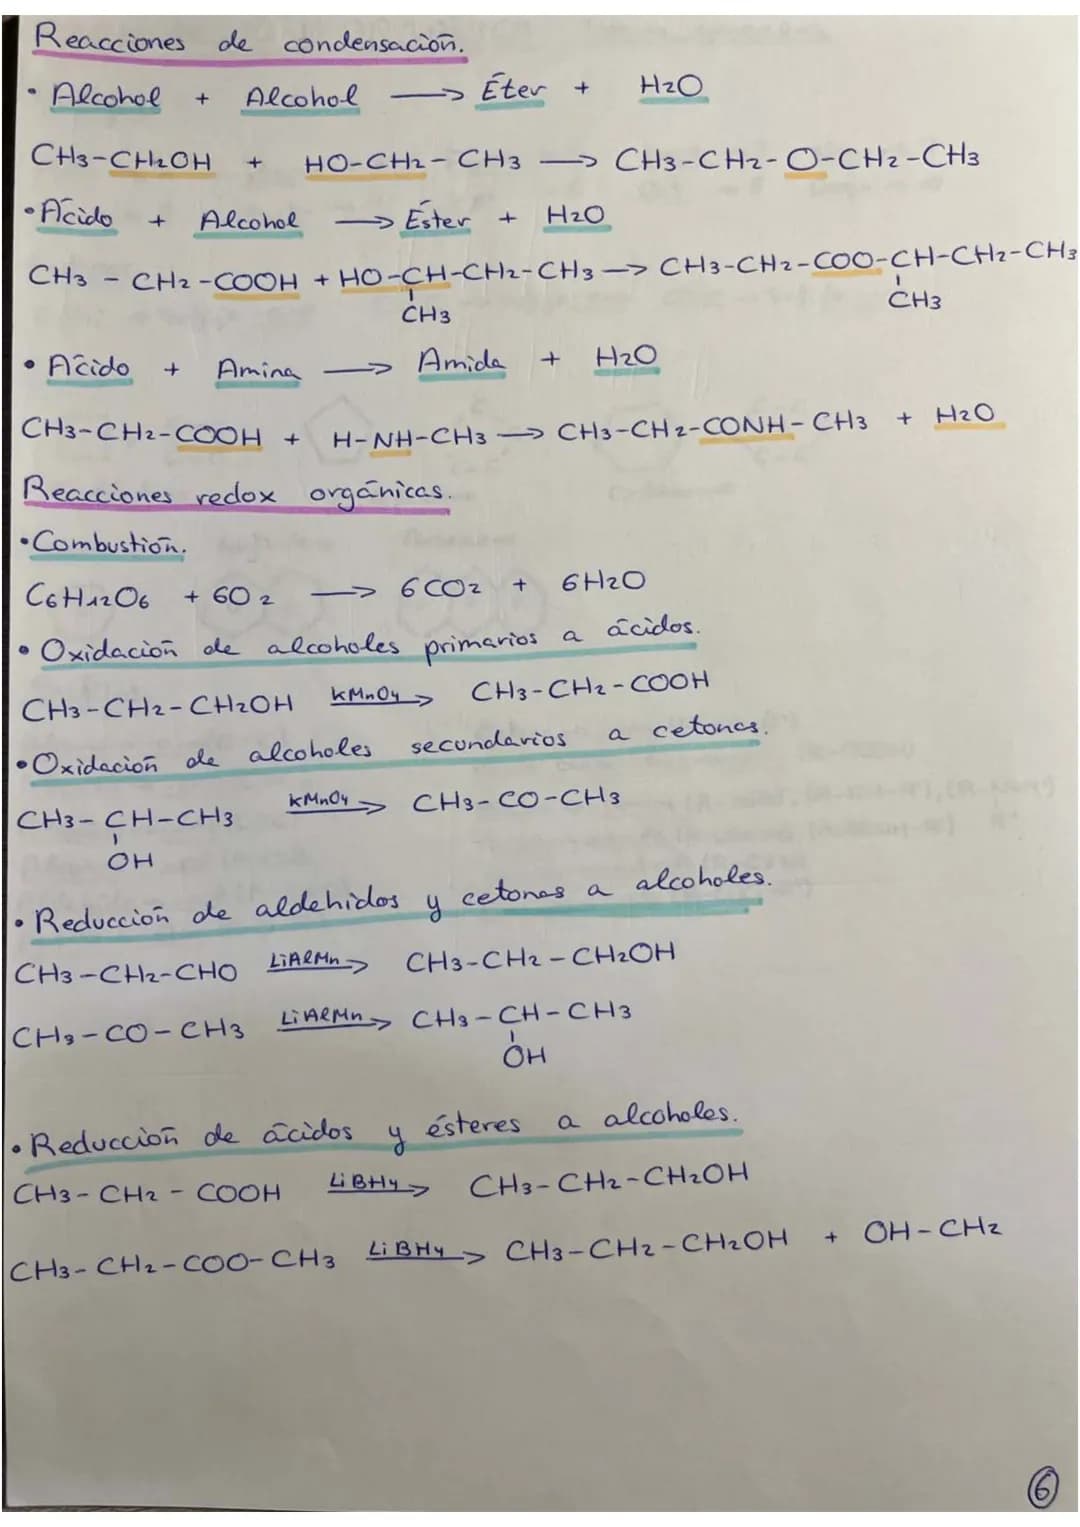 Reacciones de condensación.
• Alcohol + Alcohol → Éter + H2O
CH3-CH2OH + HO-CH2-CH3 → CH3-CH2-O-CH2-CH3
• Ácido + Alcohol → Éster + H2O
CH3-CH2-COOH + HO-CH-CH2-CH3 → CH3-CH2-COO-CH-CH2-CH3
CH3 CH3
• Ácido + Amina → Amida + H2O
CH3-CH2-COOH + H-NH-CH3 → CH3-CH2-CONH-CH3 + H2O
Reacciones redox orgánicas.
• Combustión.
C6H12O6 + 6O2 → 6CO2 + 6H2O
• Oxidación de alcoholes primarios a ácidos.
CH3-CH2-CH2OH KMnO4 → CH3-CH2-COOH
• Oxidación de alcoholes secundarios a cetonas.
CH3-CH-CH3 KMnO4 → CH3-CO-CH3
OH
• Reducción de aldehidos y cetonas a alcoholes.
CH3-CH2-CHO LiAlMn → CH3-CH2-CH2OH
CH3-CO-CH3 LiAlMn → CH3-CH-CH3
OH
• Reducción de ácidos y ésteres a alcoholes.
CH3-CH2-COOH LiBH4 → CH3-CH2-CH2OH
CH3-CH2-COO-CH3 LiBH4 → CH3-CH2-CH2OH + OH-CH2
6